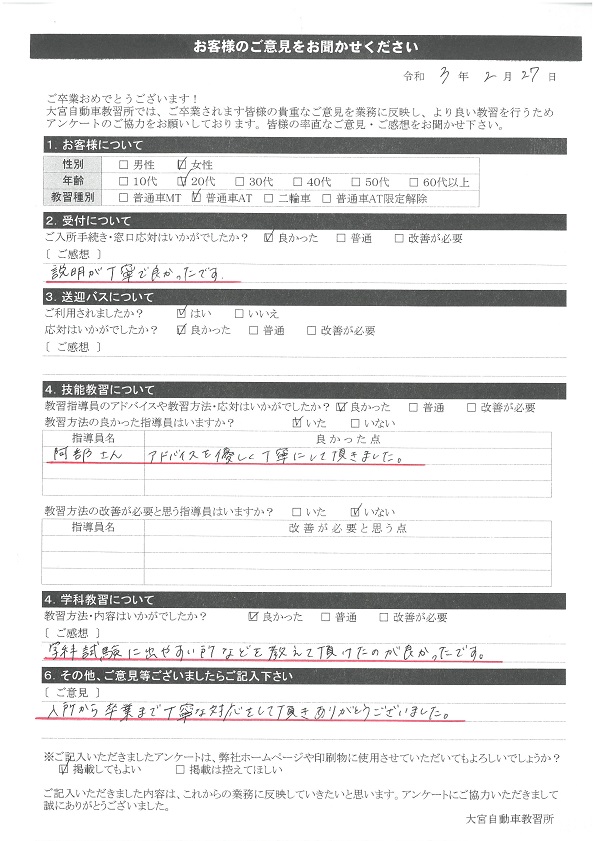 お客様のご意見をお聞かせください
令和 3 年 2 月 27 日
ご卒業おめでとうございます!
大宮自動車教習所では、ご卒業されます皆様の貴重なご意見を業務に反映し、より良い教習を行うため
アンケートのご協力をお願いしております。皆様の率直なご意見・ご感想をお聞かせ下さい。
1. お客様について
性別 □ 男性 ☑ 女性
年齢 □ 10代 ☑ 20代 □ 30代 □ 40代 □ 50代 □ 60代以上
教習種別 □ 普通車MT ☑ 普通車AT □ 二輪車 □ 普通車AT限定解除
2. 受付について
ご入所手続き・窓口応対はいかがでしたか? ☑ 良かった □ 普通 □ 改善が必要
[ ご感想 ]
説明が丁寧で良かったです.
3. 送迎バスについて
ご利用されましたか? ☑ はい □ いいえ
応対はいかがでしたか? ☑ 良かった □ 普通 □ 改善が必要
[ ご感想 ]
4. 技能教習について
教習指導員のアドバイスや教習方法・応対はいかがでしたか? ☑ 良かった □ 普通 □ 改善が必要
教習方法の良かった指導員はいますか? ☑ いた □ いない
指導員名 良かった点
阿部さん アドバイスを優しく丁寧にして頂きました。
教習方法の改善が必要と思う指導員はいますか? □ いた ☑ いない
指導員名 改善が必要と思う点
4. 学科教習について
教習方法・内容はいかがでしたか? ☑ 良かった □ 普通 □ 改善が必要
[ ご感想 ]
学科試験に出やすい所などを教えて頂けたのが良かったです。
6. その他、ご意見等ございましたらご記入下さい
[ ご意見 ]
入所から卒業まで丁寧な対応をして頂きありがとうございました。
※ご記入いただきましたアンケートは、弊社ホームページや印刷物に使用させていただいてもよろしいでしょうか?
☑ 掲載してもよい □ 掲載は控えてほしい
ご記入いただきました内容は、これからの業務に反映していきたいと思います。アンケートにご協力いただきまして
誠にありがとうございました。
大宮自動車教習所